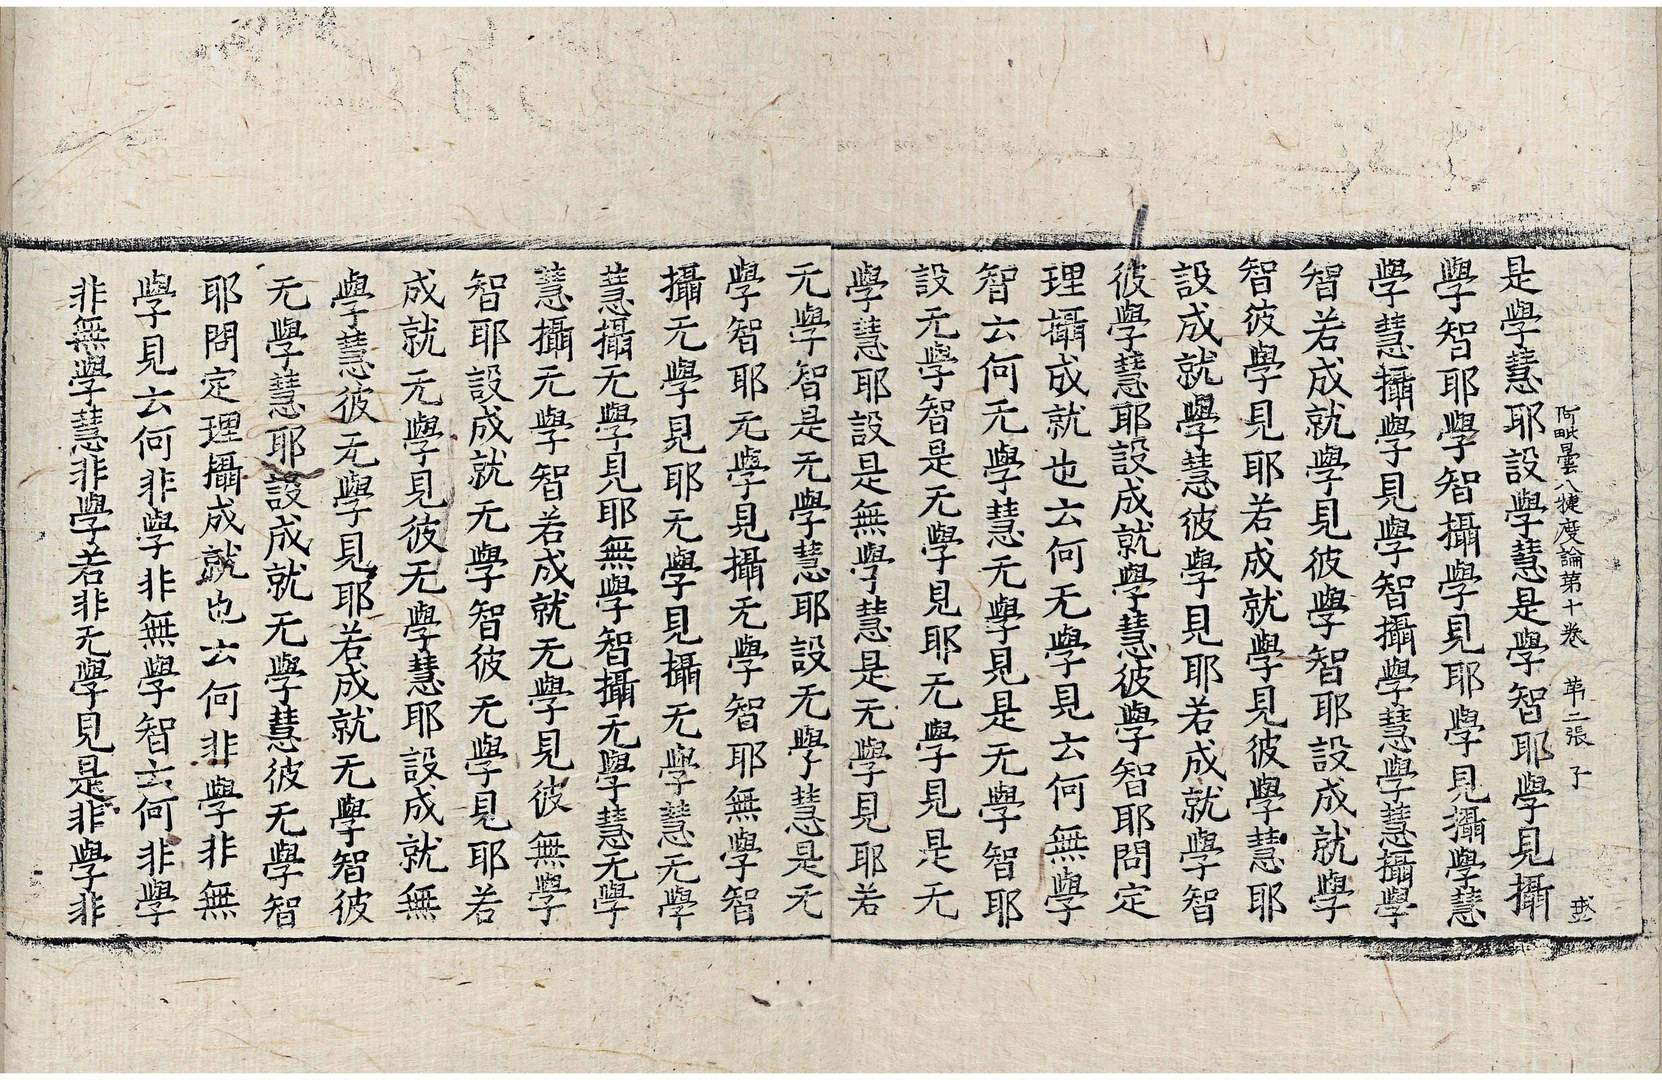 阿毗曇八揵度論第十卷 第二張 子
是學慧耶設學慧是學智耶學見攝
學智耶學智攝學見耶學見攝學慧
學慧攝學見學智攝學慧學慧攝學
智若成就學見彼學智耶設成就學
智彼學見耶若成就學見彼學慧耶
設成就學慧彼學見耶若成就學智
彼學慧耶設成就學慧彼學智耶問定
理攝成就也云何无學見云何無學
智云何无學慧无學見是无學智耶
設无學智是无學見耶无學見是无
學慧耶設是無學慧是无學見耶若
无學智是无學慧耶設无學慧是无
學智耶无學見攝无學智耶無學智
攝无學見耶无學見攝无學慧无學
慧攝无學見耶無學智攝无學慧无學
慧攝无學智若成就无學見彼無學
智耶設成就无學智彼无學見耶若
成就无學見彼无學慧耶設成就無
學慧彼无學見耶若成就无學智彼
无學慧耶設成就无學慧彼无學智
耶問定理攝成就也云何非學非無
學見云何非學非無學智云何非學
非無學慧非學若非无學見是非學非